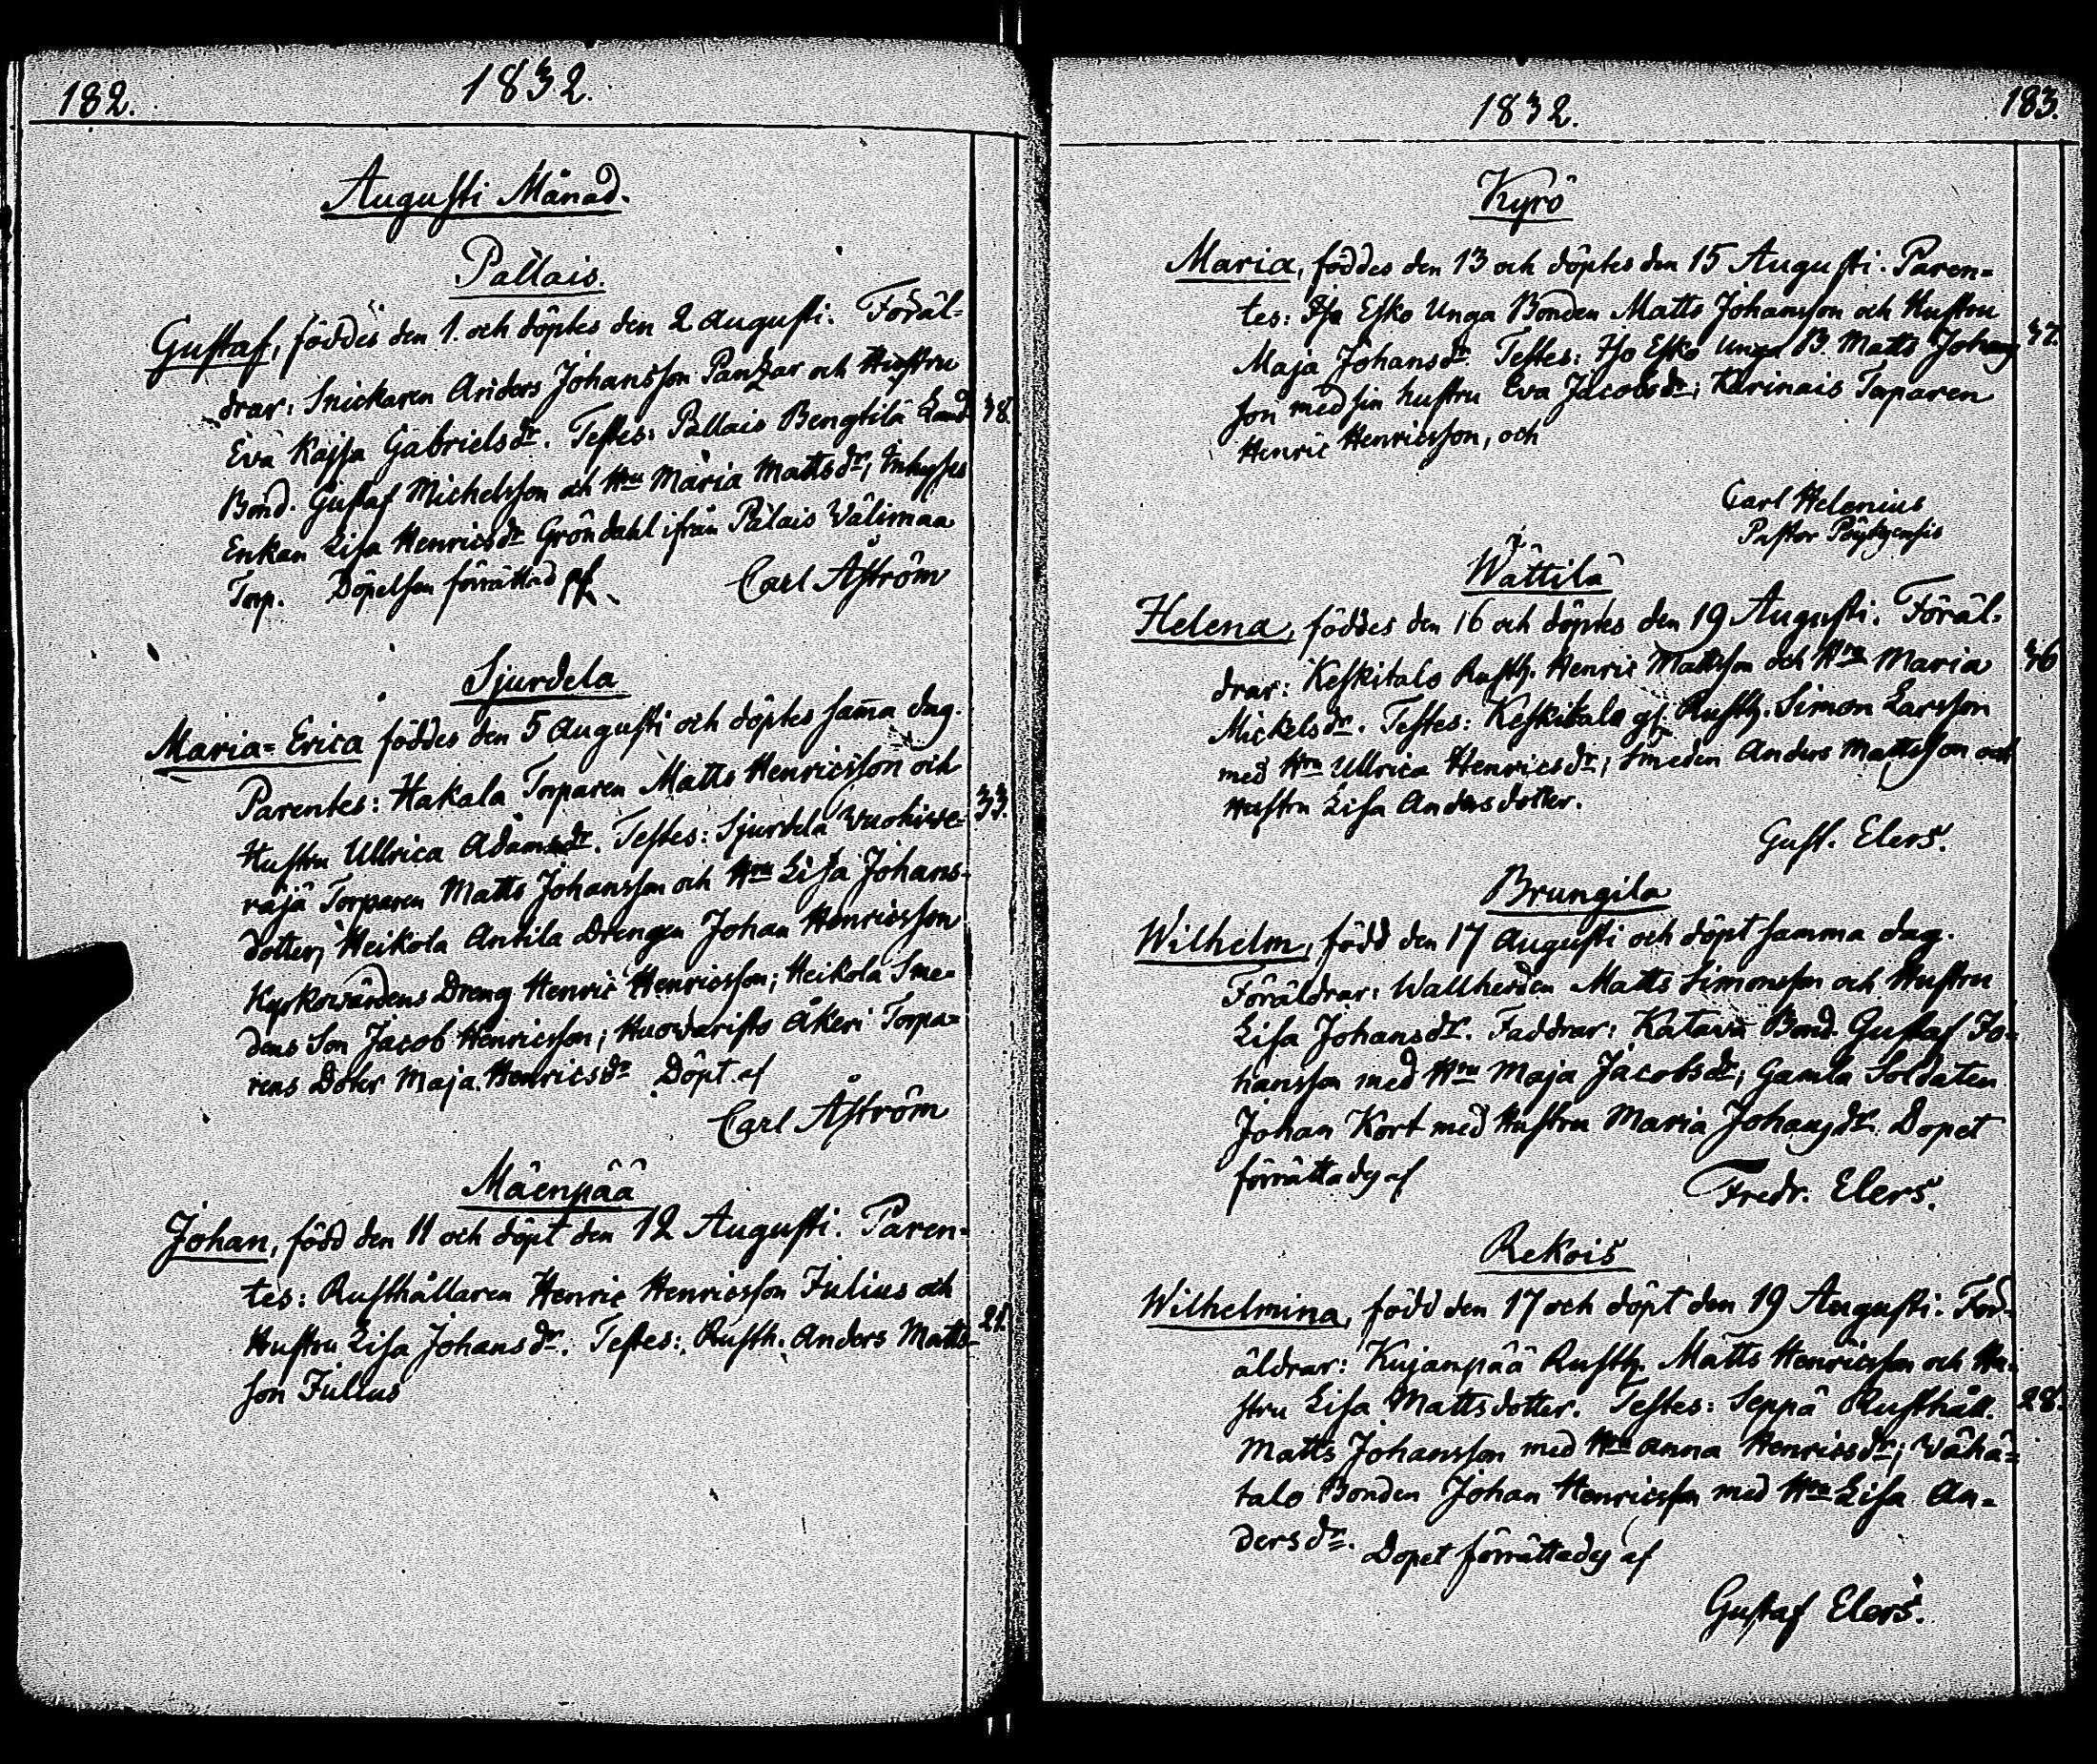 182.
1832.
Augusti Månad.
Pallais.
Gustaf, föddes den 1. och döptes den 2 Augusti. Föräl-
drar: Snickaren Anders Johansson Pantzar och Hustru
Eva Kajsa Gabrielsdr. Testes: Pallais Bengtilä Land
38.
Bond. Gustaf Michelsson och Hru Maria Mattsdr; Inhyses
Enkan Lisa Henricsdr Gröndahl ifrån Palais Wälimaa
Torp. Döpelsen förrättad af
Carl Åström
Sjurdela
Maria-Erica föddes den 5 Augusti och döptes sama dag.
Parentes: Hakala Torparen Matts Henricsson och
33.
Hustru Ullrica Adamsdr. Testes: Sjurdela Wuohive-
räjä Torparen Matts Johansson och Hru Lisa Johans-
dotter; Heikola Antila Drengen Johan Henricsson
Kyrkowärdens Dreng Henric Henricsson; Heikola Sme-
dens Son Jacob Henricsson; Huovaristo Åkeri Torpa-
rens Doter Maja Henricsdr Döpt af
Carl Åström
Mäenpää
Johan, född den 11 och döpt den 12 Augusti. Paren-
tes: Rusthållaren Henric Henricsson Julius och
Hustru Lisa Johansdr. Testes: Rusth. Anders Matts-
21.
son Julius
183.
1832.
Kyrö
Maria, föddes den 13 och döptes den 15 Augusti. Paren-
tes: Iso Esko Unga Bonden Matts Johansson och Hustru
37.
Maja Johansdr. Testes: Iso Esko Unga B. Matts Johans
son med sin hustru Eva Jacobsdr; Karinais Torparen
Henric Henricsson, och
Carl Helenius
Pastor Pöytyensis
Wättilä
Helena, föddes den 16 och döptes den 19 Augusti. Föräl-
drar: Keskitalo Rusth. Henric Mattsson och Hru Maria
36
Mickelsdr. Testes: Keskitalo gl. Rusth. Simon Larsson
med Hru Ullrica Henricsdr; Smeden Anders Mattsson och
Hustru Lisa Andersdotter.
Gust. Elers.
Brungila
Wilhelm, född den 17 Augusti och döpt samma dag.
Föräldrar: Wallherden Matts Simonsson och Hustru
Lisa Johansdr. Faddrar: Katava Bond. Gustaf Jo-
hansson med Hru Maja Jacobsdr; Gamla Soldaten
Johan Kort med Hustru Maria Johansdr. Dopet
förrättades af
Fredr. Elers.
Rekois
Wilhelmina, född den 17 och döpt den 19 Augusti. För-
äldrar: Kujanpää Rusth. Matts Henricsson och Hu-
stru Lisa Mattsdotter. Testes: Seppä Rusthåll.
28.
Matts Johansson med Hru Anna Henricsdr; Wähä-
talo Bonden Johan Henricsson med Hru Lisa An-
dersdr. Dopet förrättades af
Gustaf Elers.